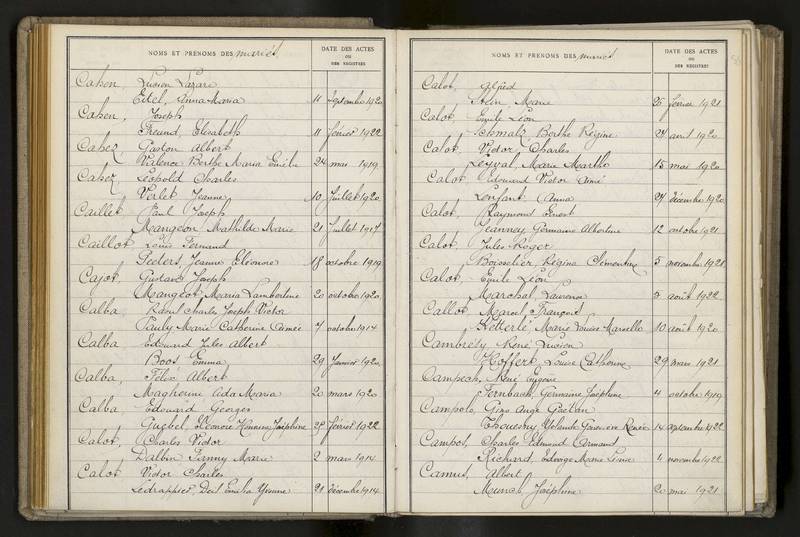 NOMS ET PRÉNOMS DES mariés
DATE DES ACTES
OU
DES REGISTRES
Cahen, Lucien Lazare
Etel, Anna Maria 11 Septembre 1920
Cahen, Joseph
Freund, Elisabeth 11 février 1922
Cahez Gaston Albert
Valence Berthe Maria Emilie 24 mai 1919
Cahez Léopold Charles
Verlet Jeanne 10 Juillet 1920
Caillet Paul Joseph
Mangeon Mathilde Marie 21 Juillet 1917
Caillot Louis Fernand
Peeters, Jeanne Eléonore 18 octobre 1919
Cajot Gustave Joseph
Mangeot Maria Lambertine 20 octobre 1920
Calba Raoul Charles Joseph Victor
Pauly Marie Catherine Aimée 7 octobre 1914
Calba Edouard Jules Albert
Boos Emma 29 Janvier 1920
Calba, Félix Albert
Magherini Ada Maria 20 mars 1920
Calba Edouard Georges
Guebel, Eléonore Joséphine 25 février 1922
Calot, Charles Victor
Dalbin Fanny Marie 2 mars 1914
Calot Victor Charles
Emilia Yvonne 21 décembre 1914
NOMS ET PRÉNOMS DES mariés
DATE DES ACTES
OU
DES REGISTRES
Calot, Alfred
Stein Marie 25 février 1921
Calot Emile Léon
Schmalz, Berthe Régine 24 avril 1920
Calot Victor Charles
Leyval, Marie Marthe 15 mai 1920
Calot Edouard Victor Aimé
Lenfant Anna 27 décembre 1920
Calot, Raymond Ernest
Jeanney Germaine Albertine 12 octobre 1921
Calot, Jules Roger
Boisselier, Régina Clémentine 5 novembre 1921
Calot Emile Léon
Marchal Laurence 5 août 1922
Callot Marcel François
Ketterlé, Marie Louise Marcelle 10 août 1920
Cambrésy René Lucien
Hoffert, Louise Catherine 29 mars 1921
Campech, René Eugène
Fernbach, Germaine Joséphine 4 octobre 1919
Campolo, Gino Ange Gaétan
Yolande Geneviève Renée 14 septembre 1922
Campot, Charles Edmond Armand
Richard, Edwige Marie Louise 11 novembre 1922
Camus, Albert
Munch Joséphine 20 mai 1921